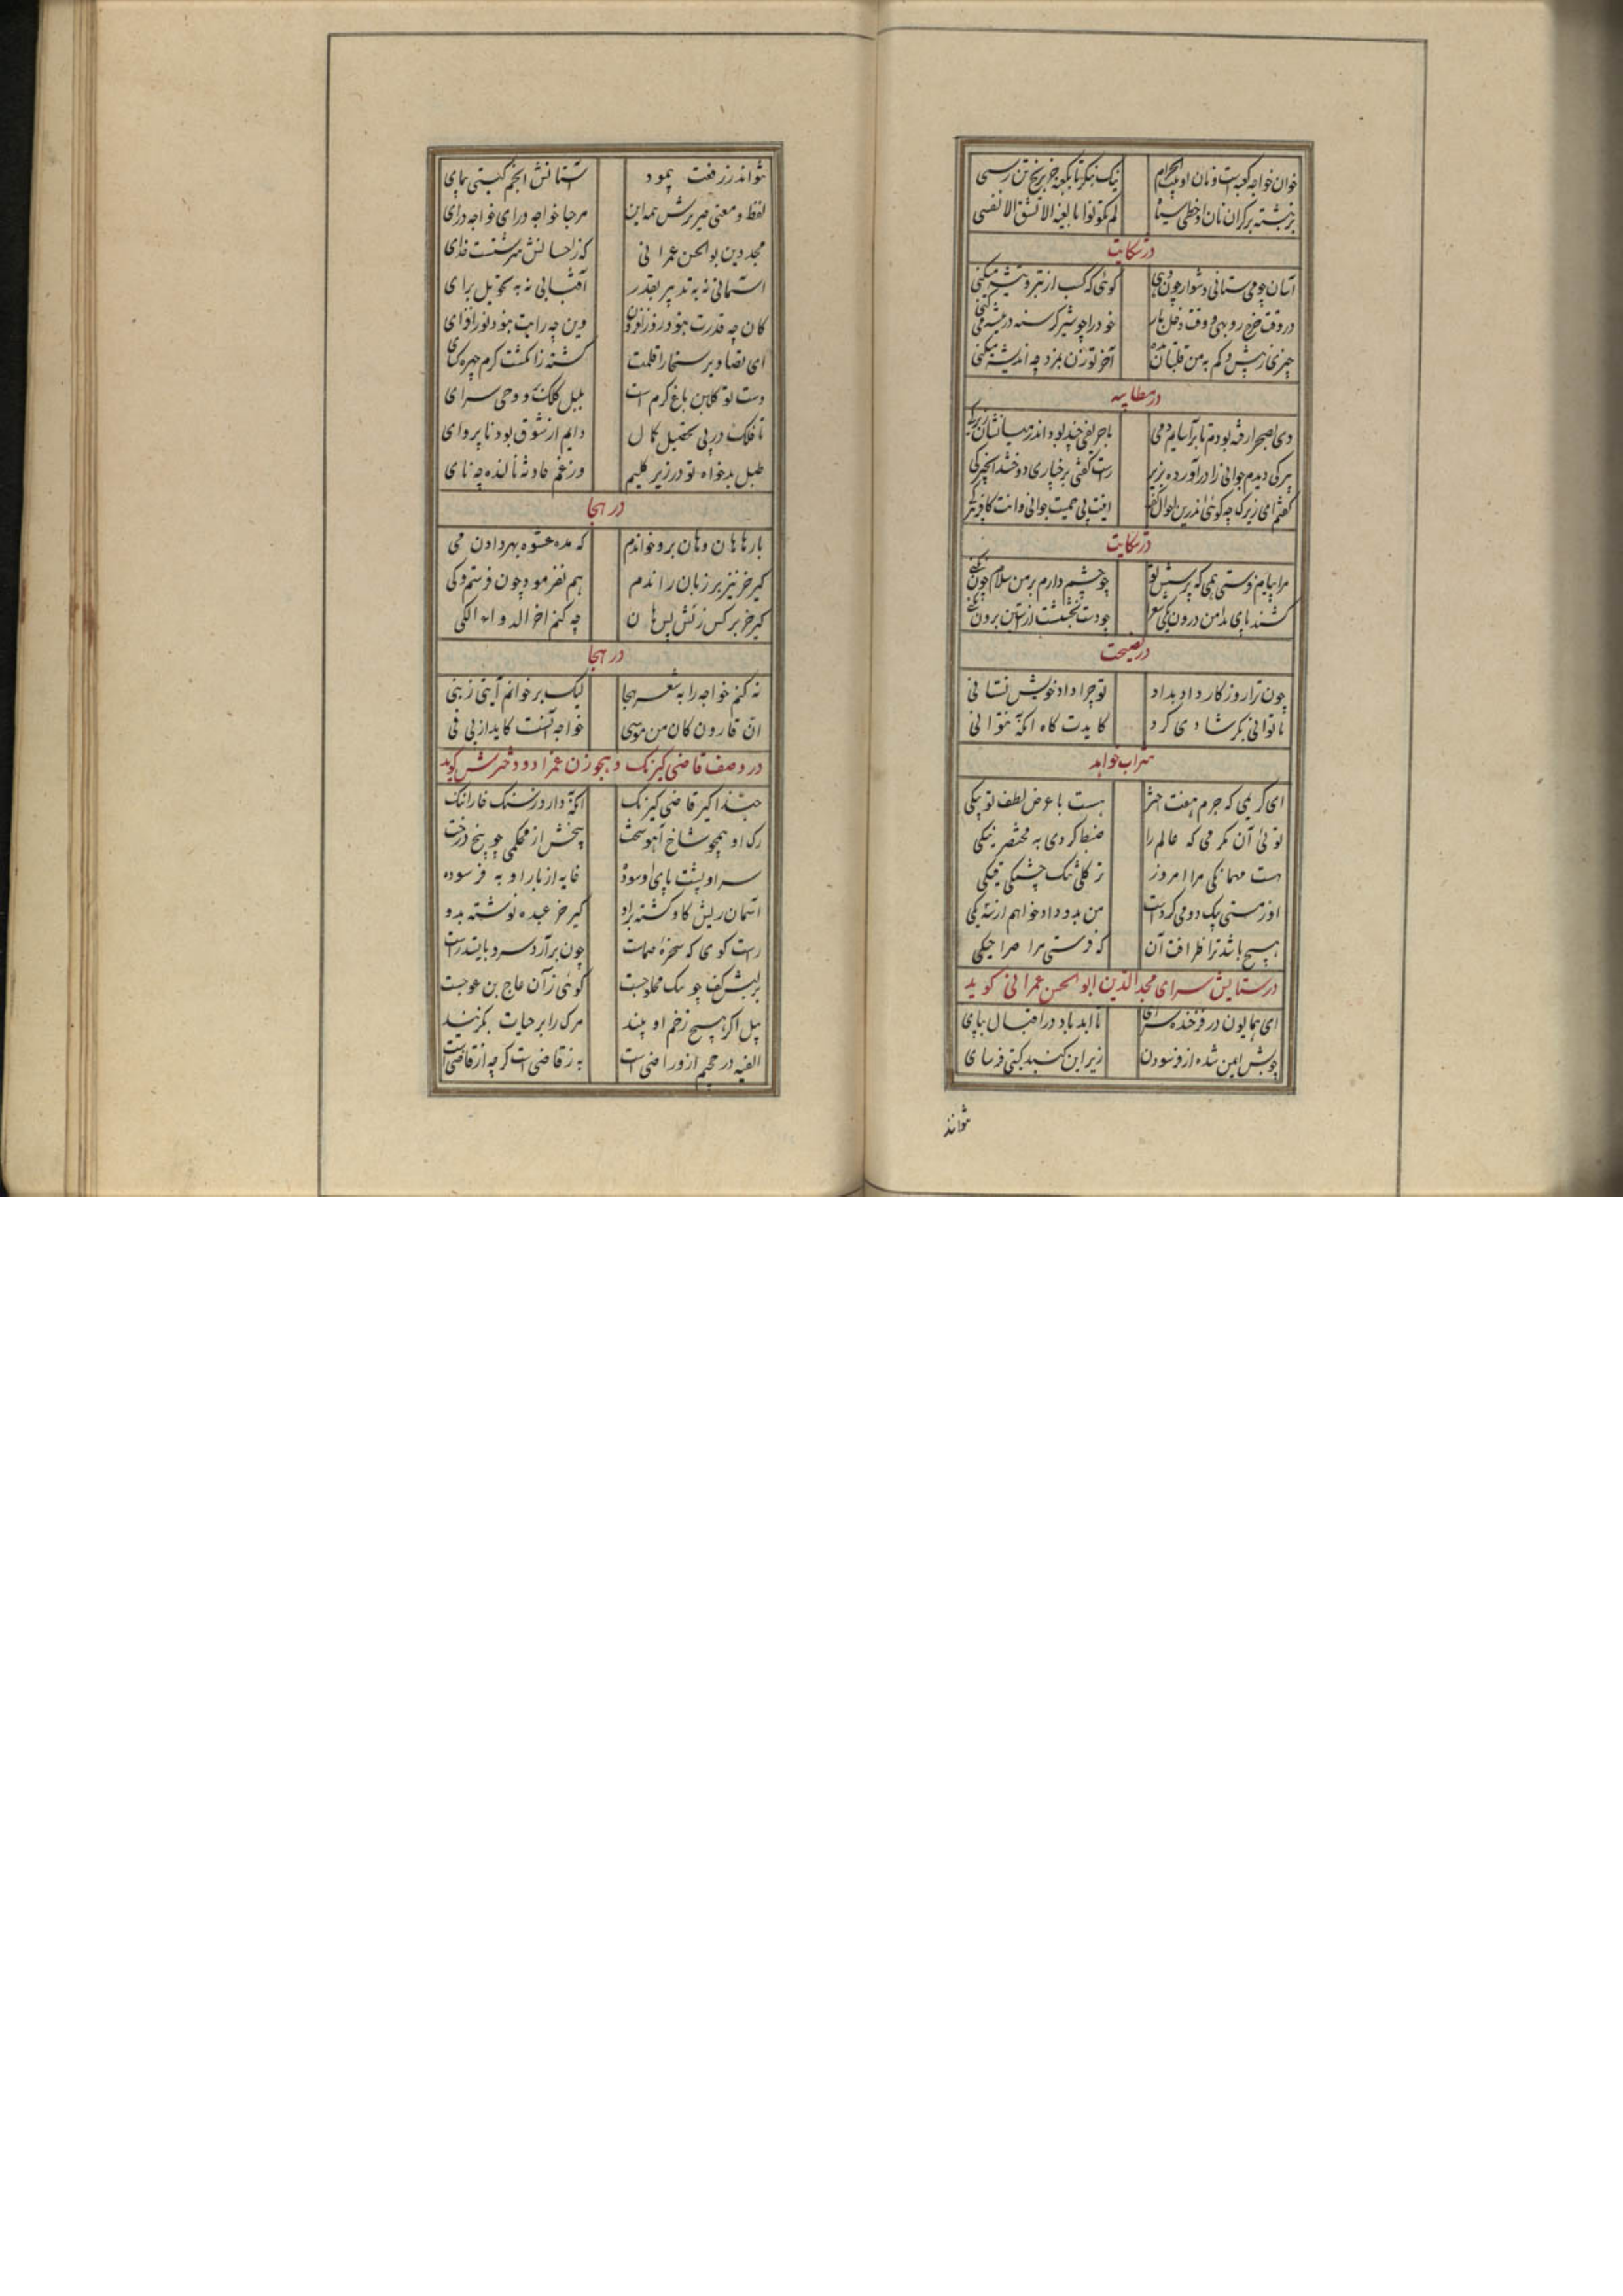 خوان خواجه کعبه است و نان او بیت الحرام نیک بنگر تا بکعبه جز برنج تن رسی
برنبشته بر کران نان او خطی سیاه لم تکونوا بالغیه الا بشق الانفس
در شکایت
آسان چو می ستانی و دشوار چون دهی کوئی که کسب از تبر و تیشه میکنی
در وقت خرج روبهی و وقت دخل باز خود را چو شیر گرسنه در بیشه می کنی
چیزی ز بیش و کم به من قلتبان بده آخر تو زن بمزد چه اندیشه میکنی
در مطایبه
دی بصحرا رفته بودم تا برآسایم دمی با حریفی چند بود اندر میانشان زیرکی
پیرکی دیدم جوانی را درآورده بزیر راست گفتی بر خیاری دوختند انجیرکی
گفتم ای زیرک چه کوئی اندرین احوال گفت اینت بی حمیت جوانی وانت کافر پیرکی
در شکایت
مرا پیام فرستی همی که پرسش تو چو چشم دارم بر من سلام چون نکنی
کشند پای بدامن درون یکی شعر چو دست بخششت از آستین برون نکنی
در نصیحت
چون ترا روزگار داد بداد تو چرا داد خویش نستانی
تا توانی بگرد شادی گرد کایدت گاه آنکه نتوانی
شراب خواهد
ای کریمی که جرم هفت اختر هست با عرض لطف تو پیکی
توئی آن مکرمی که عالم را ضبط کردی به مختصر نیکی
هست مهمانکی مرا امروز ترکلی تنک چشمکی قیکی
او ز مستی یک دو می کرد است من بدو داد خواهم از سه یکی
هیچ باشد ترا ظرافت آن که فرستی مرا صراحیکی
در ستایش سرای مجدالدین ابوالحسن عمرانی کوید
ای همایون در فرخنده سرای تا ابد باد در اقبال بپای
چوبش ایمن شده از فرسودن زیر این گنبد گیتی فرسای
نتواند
نتواند ز رفعت پیمود آستانش انجم گیتی پیمای
لفظ و معنی صریرش همه این مرحبا خواجه درای خواجه درای
مجد دین بوالحسن عمرانی که ز احسانش سرشتست خدای
آسمانی نه به تدبیر بقدر آفتابی نه به تحویل برای
کان چه قدرت بود روز افزون وین چه رایت بود نور افزای
ای بضاد بر سخا را قلمت کشته ز انگشت کرم چهره گشای
دست تو گلبن باغ کرم است بلبل کلک تو وحی سرای
تا فلک در پی تحصیل کمال دایم از شوق بود ناپروای
طبل بدخواه تو در زیر گلیم وز غم حادثه نالنده چو نای
در هجا
بارها هان و هان برو خواندم که مده عشوه بهر دادن می
کیر خر نیز بر زبان راندم هم نفرمود چون فرستم و کی
کیر خر بر کس زنش پس هان چه کنم آخر الدواء الکی
در هجا
نه کنم خواجه را به شعر هجا لیک بر خوانم آیتی ز نبی
ان قارون کان من موسی خواجه آنست کاید از پی فی
در وصف قاضی کیرنک و هجو زن عمزاد و دخترش کوید
حبذا کیر قاضی کیرنک آنکه دارد ز سنگ خارا ننگ
رک او همچو شاخ آهو سخت بیخش از محکمی چو بیخ درخت
سر او پشت پای او سوده خایه از بار او به فرسوده
آسمان ریش کاو کشته براو کیر خر عبده نوشته بدو
راست کوی که سخره صماست چون برآرد سر و بایستد راست
بر لبش کف چو سک محلوجست گوئی ز آن عاج بن عوجست
پیل اگر هیچ زخم او بیند مرک را بر حیات بگزیند
الفیه در جحیم ازو راضی است به ز قاضی است کرچه از قاضی است